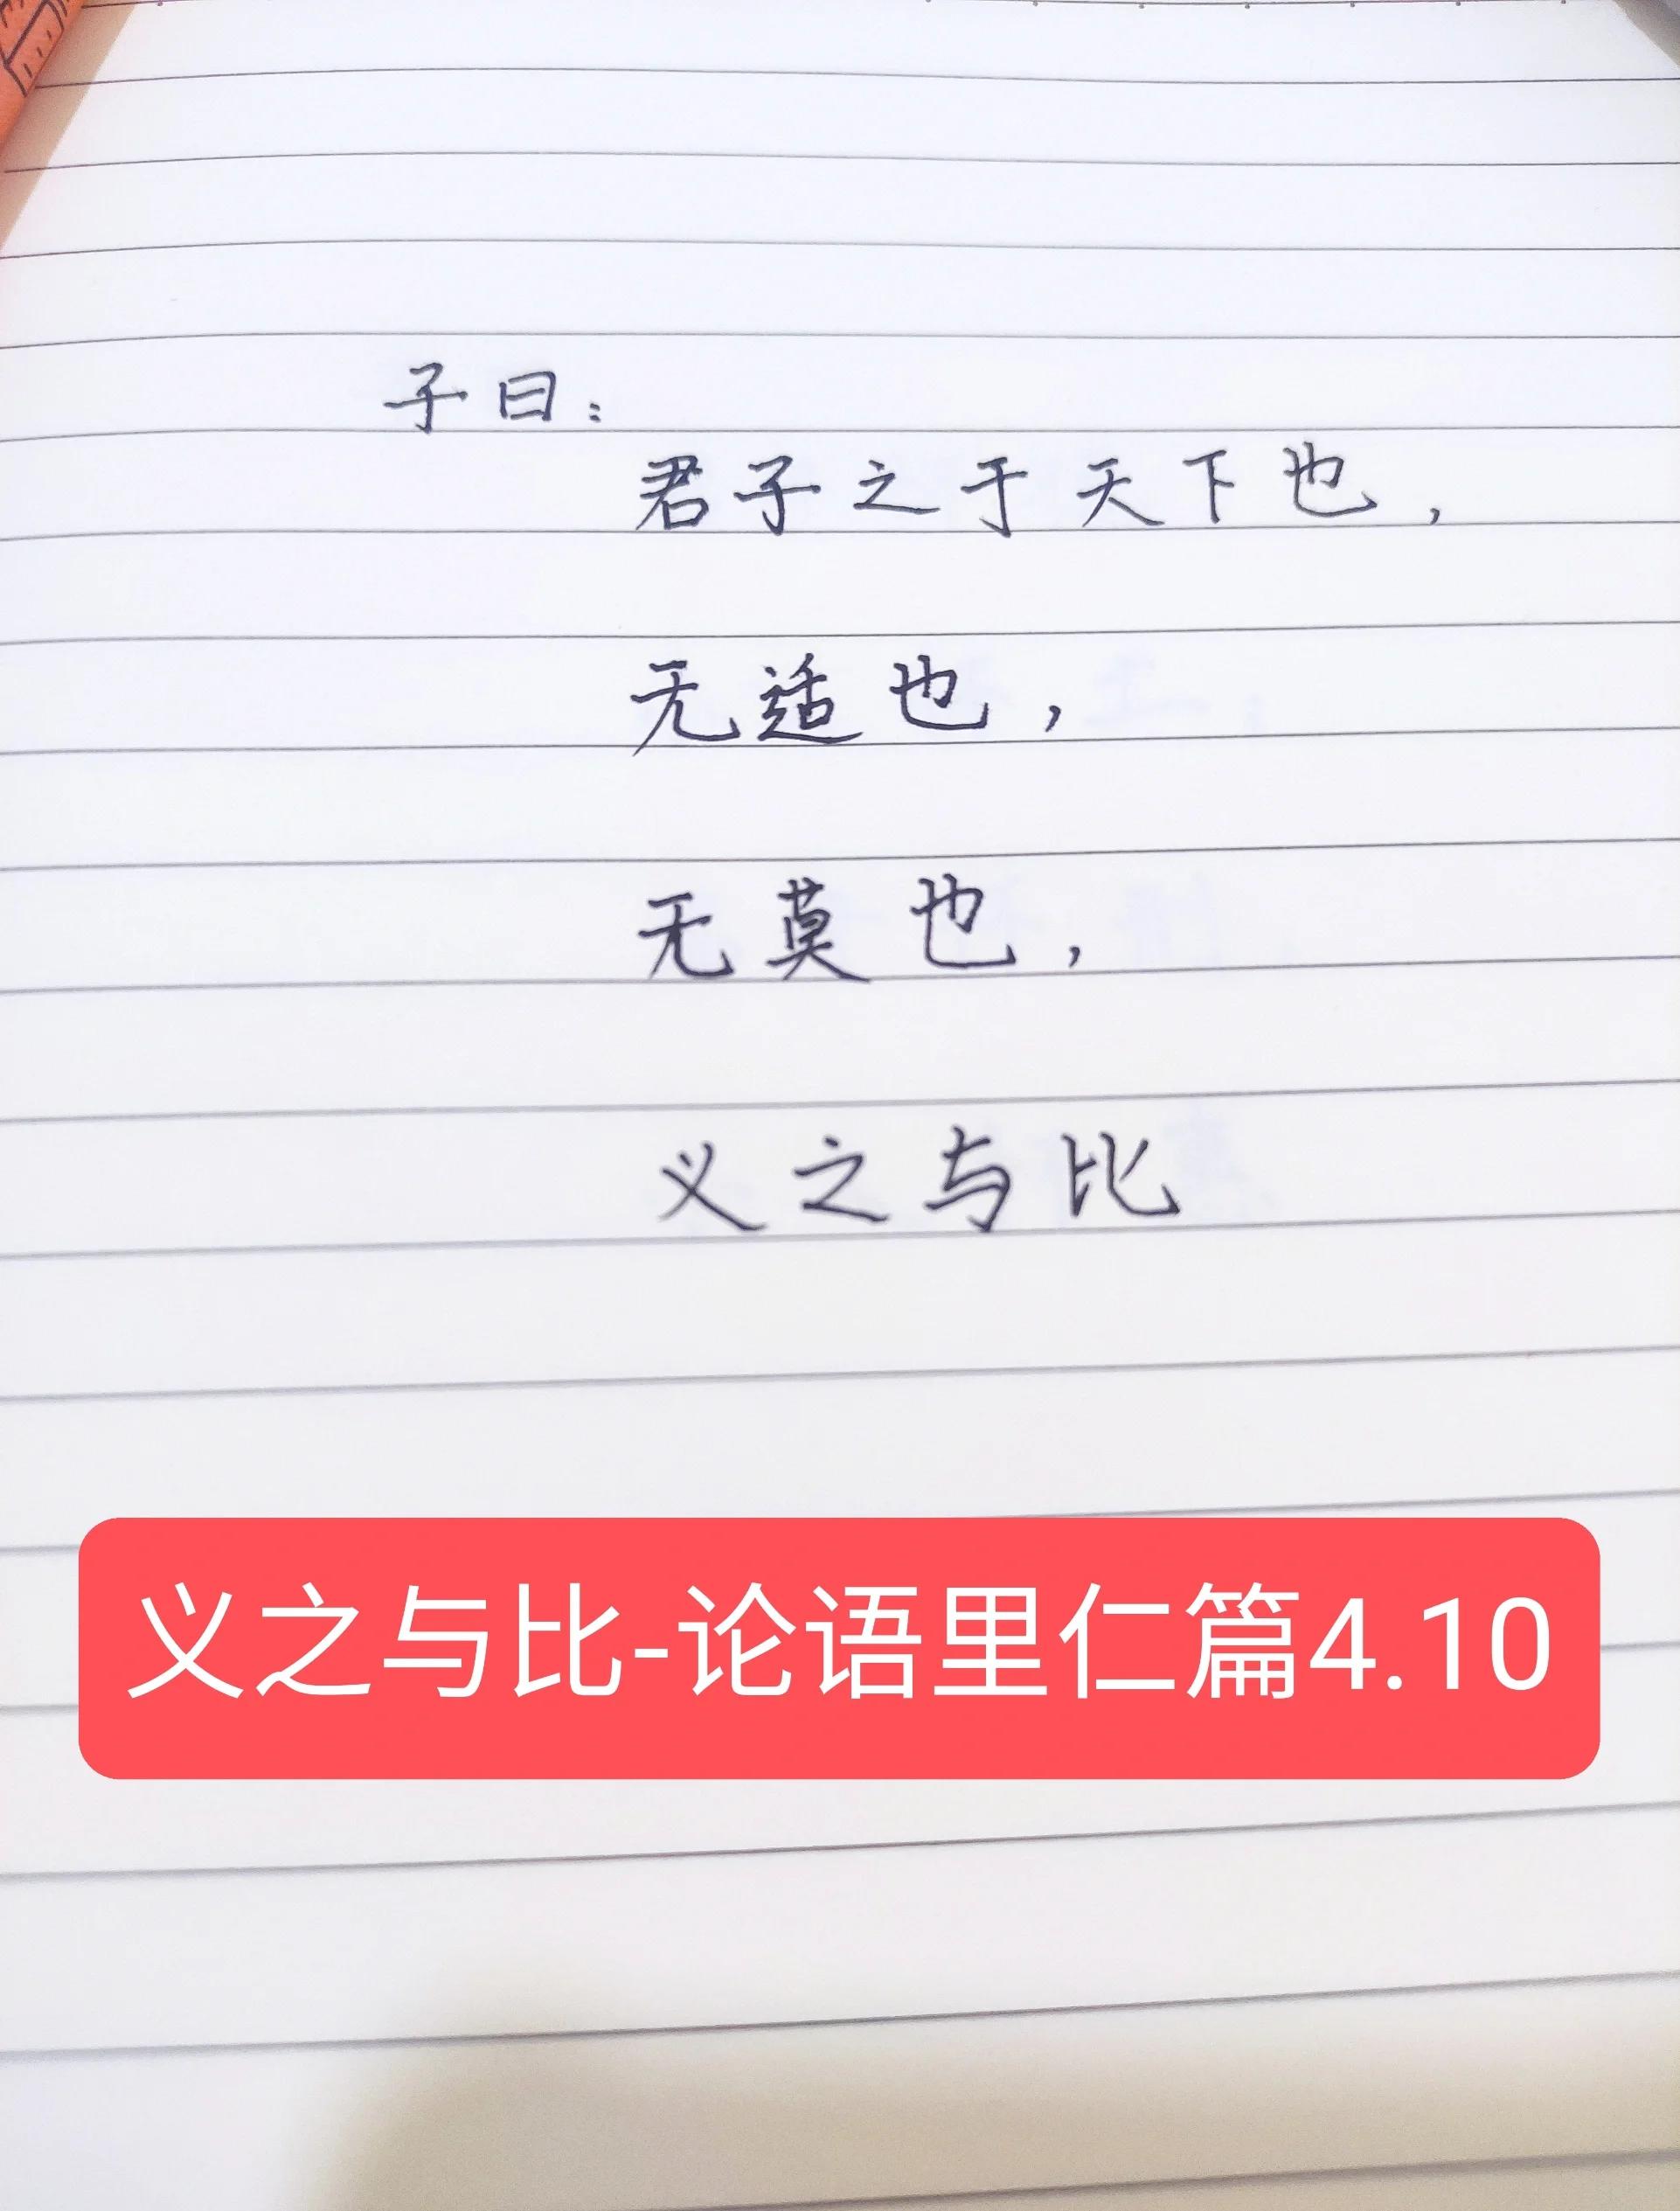 子曰：
君子之于天下也，
无适也，
无莫也，
义之与比
义之与比-论语里仁篇4.10